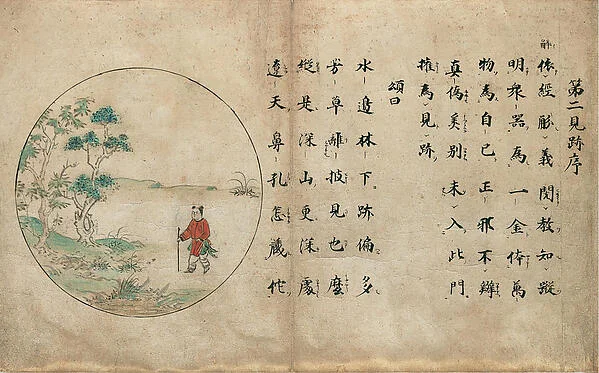 第二見跡序
依經勝義閱教知蹤
明衆器為一金体萬
物為自己正邪不辨
真偽奚別未入此門
權為見跡
頌曰
水邊林下跡偏多
芳草離披見也麼
縱是深山更深處
遼天鼻孔怎藏佗